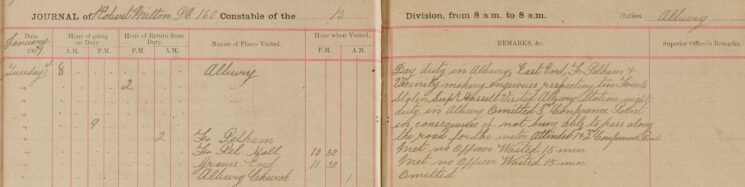 JOURNAL of Robert Milton PC 160 Constable of the B Division, from 8 a.m. to 8 a.m. Station Albury
Date. January 1907
Hour of going on Duty. A.M. P.M.
Hour of Return from Duty. A.M. P.M.
Names of Places Visited.
Hour when Visited. P.M. A.M.
REMARKS, &c.
Superior Officer's Remarks.
Tuesday 1st 8 Albury Day duty in Albury, East End, Fx Pelham &
" 2 Vicinity making enquires respecting live
" Stolen Supt Hassell Visited Albury Station night
" duty in Albury Omitted 3rd Conference Point
" 9 in consequence of not being able to pass along
" 2 the road for the water Attended 1 & 2nd Conference Points
" Fx Pelham
" Fx Pel. Hall 10 30 I met no Officer Waited 15 min
" Graves End 11 30 I met no Officer Waited 15 min
" Albury Church 1 Omitted